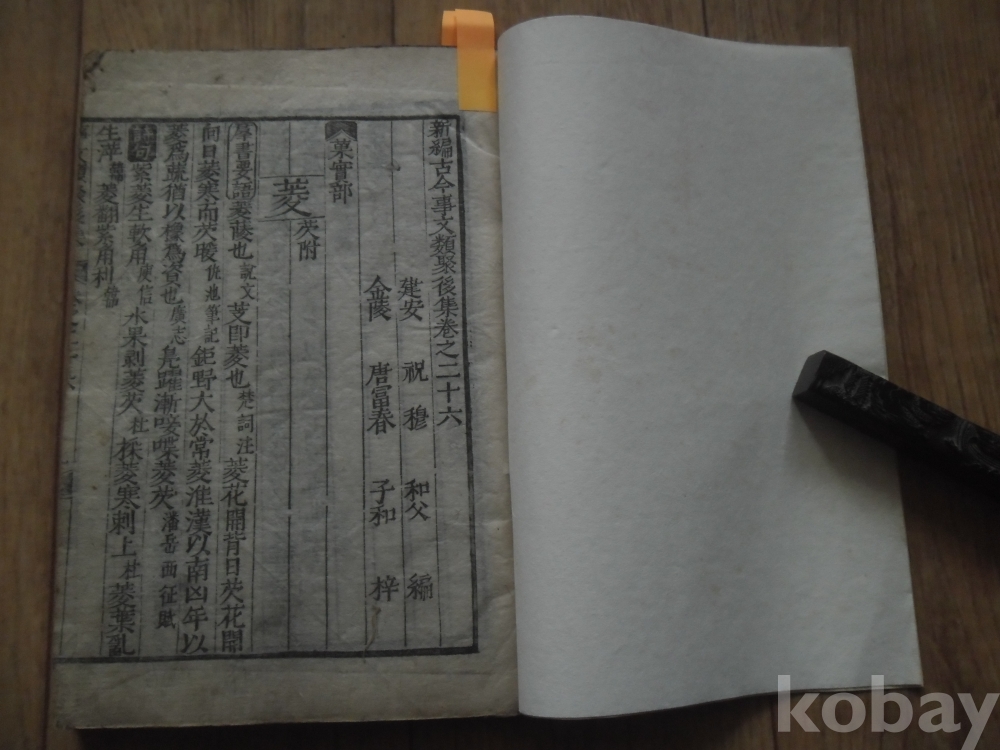 新編古今事文類聚後集卷之二十六
建安 祝穆 和父 編
金陵 唐富春 子和 梓
菓實部
菱 芡附
羣書要語 菱薢也說文芰即菱也楚詞注菱花開背日芡花開
向日菱寒而芡暖仇池筆記鉅野大於常菱淮漢以南凶年以
菱為蔬猶以橡為資也廣志鳧躍漸唼喋菱芡潘岳西征賦
紫菱生軟角庾信水果剥菱芡杜採菱寒刺上杜菱葉亂
生萍 菱翻紫角利
kobay